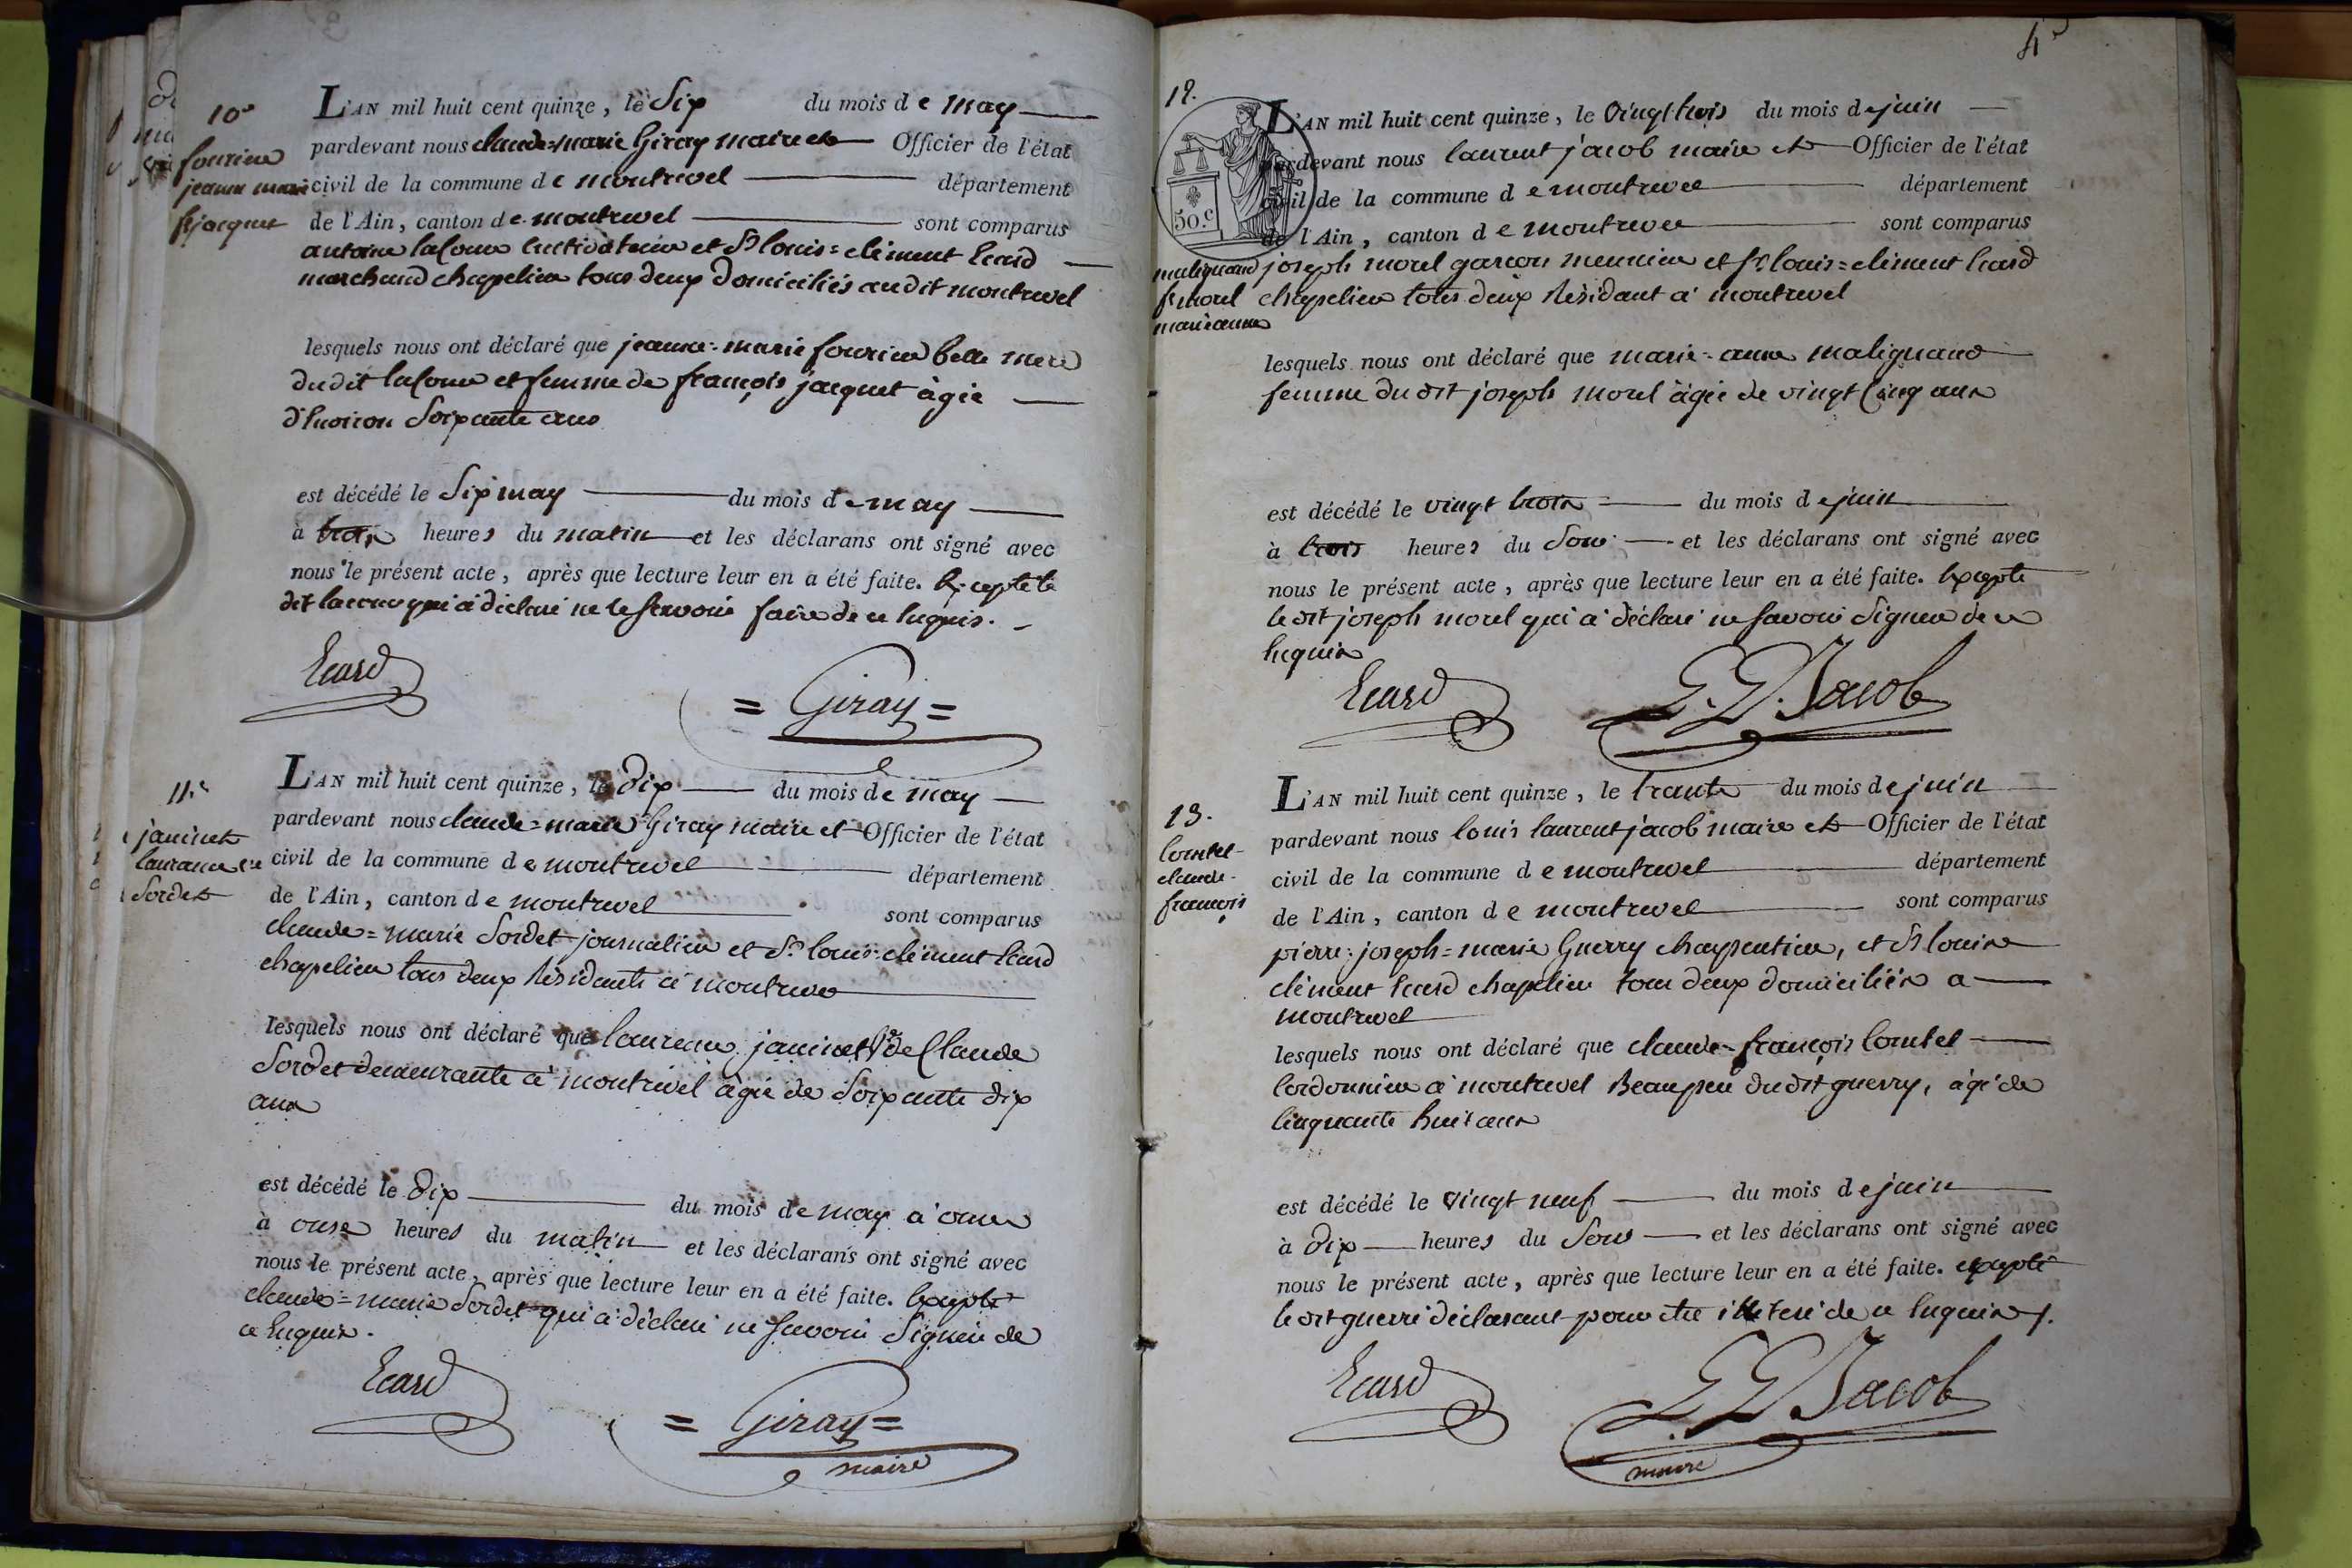 10e
fourier
jeanne marie
fe jacquet
L'AN mil huit cent quinze, le Six du mois de may
pardevant nous claude=marie Giray maire et Officier de l'état
civil de la commune de montrevel département
de l'Ain, canton de montrevel sont comparus
antoine lacome cultivateur et Sr louis=clement Ecard
marchand chapelier tous deux domiciliés audit montrevel
lesquels nous ont déclaré que jeanne-marie fourier belle mere
dudit lacome et femme de françois jacquet agée
d'Environ Soixante ans
est décédé le Six may du mois de may
à trois heures du matin et les déclarans ont signé avec
nous le présent acte, après que lecture leur en a été faite. Excepté le
dit lacome qui a déclaré ne le scavoir faire de ce Enquis.
Ecard
= Giray =
11.e
janinet
laurance ve
Sordet
L'AN mil huit cent quinze, le Dix du mois de may
pardevant nous claude=marie Giray maire et Officier de l'état
civil de la commune de montrevel département
de l'Ain, canton de montrevel sont comparus
claude=marie Sordet journalier et Sr louis-clement Ecard
chapelier tous deux Résidants à montrevel
lesquels nous ont déclaré que laurence janinet Ve de Claude
Sordet demeurante à montrevel agée de Soixante dix
ans
est décédé le Dix du mois de may à onze
à onze heures du matin et les déclarans ont signé avec
nous le présent acte, après que lecture leur en a été faite. Excepté
claude=marie Sordet qui a déclaré ne savoir Signer de
ce Enquis.
Ecard
= Giray =
maire
4e
12.
50.c
malignand
fe morel
marieanne
L'AN mil huit cent quinze, le Vingt trois du mois de juin
pardevant nous laurent jacob maire et Officier de l'état
civil de la commune de montrevel département
de l'Ain, canton de montrevel sont comparus
joseph morel garcon meunier et Sr louis=clément Ecard
chapelier tous deux Résidant à montrevel
lesquels nous ont déclaré que marie-anne malignand
femme dudit joseph morel agée de vingt Cinq ans
est décédé le vingt trois du mois de juin
à trois heures du Soir et les déclarans ont signé avec
nous le présent acte, après que lecture leur en a été faite. Excepté
ledit joseph morel qui a déclaré ne savoir Signer de ce
Enquis
Ecard
L. L. Jacob
13.
Comtet
claude-
françois
L'AN mil huit cent quinze, le trante du mois de juin
pardevant nous louis laurent jacob maire et Officier de l'état
civil de la commune de montrevel département
de l'Ain, canton de montrevel sont comparus
pierre-joseph=marie Guerry charpentier, et Sr louis
clément Ecard chapelier tous deux domiciliés a
montrevel
lesquels nous ont déclaré que claude-françois Comtet
Cordonnier à montrevel Beaupere dudit guerry, agé de
Cinquante huit ans
est décédé le vingt neuf du mois de juin
à Dix heures du Soir et les déclarans ont signé avec
nous le présent acte, après que lecture leur en a été faite. excepté
ledit guerri déclarant pour etre de ce Enquis
Ecard
L. L. Jacob
maire